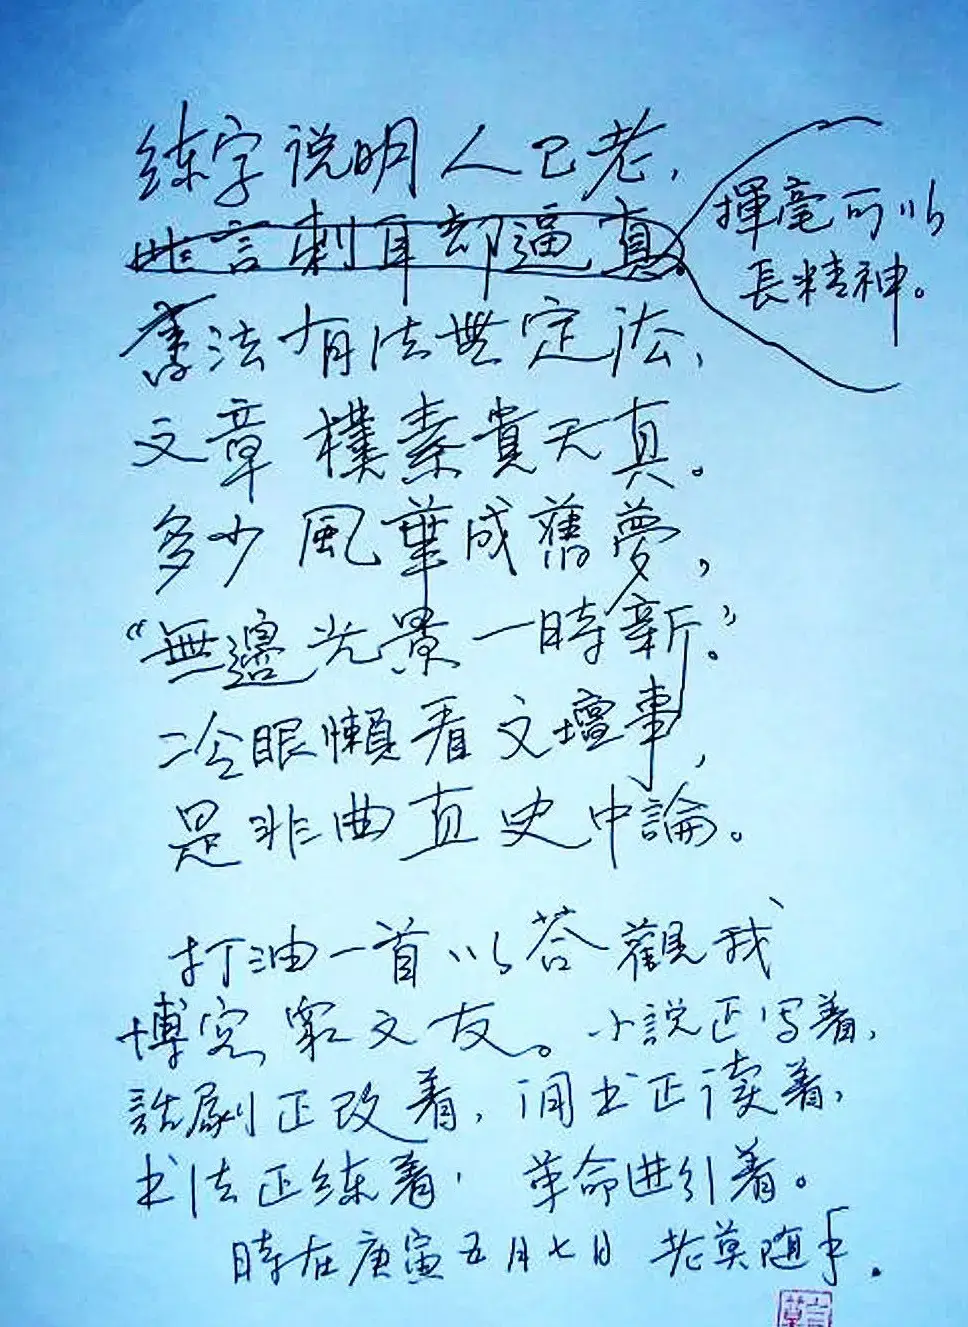 练字说明人已老,
此言刺耳却逼真。
揮毫可以
長精神。
書法有法無定法,
文章樸素貴天真。
多少風華成舊夢,
“無邊光景一時新。”
冷眼懶看文壇事,
是非曲直史中論。
打油一首以答觀我
博客眾文友。小說正写着,
話劇正改着,闲书正读着,
书法正练着,革命进行着。
時在庚寅五月七日 老莫随手。
莫言